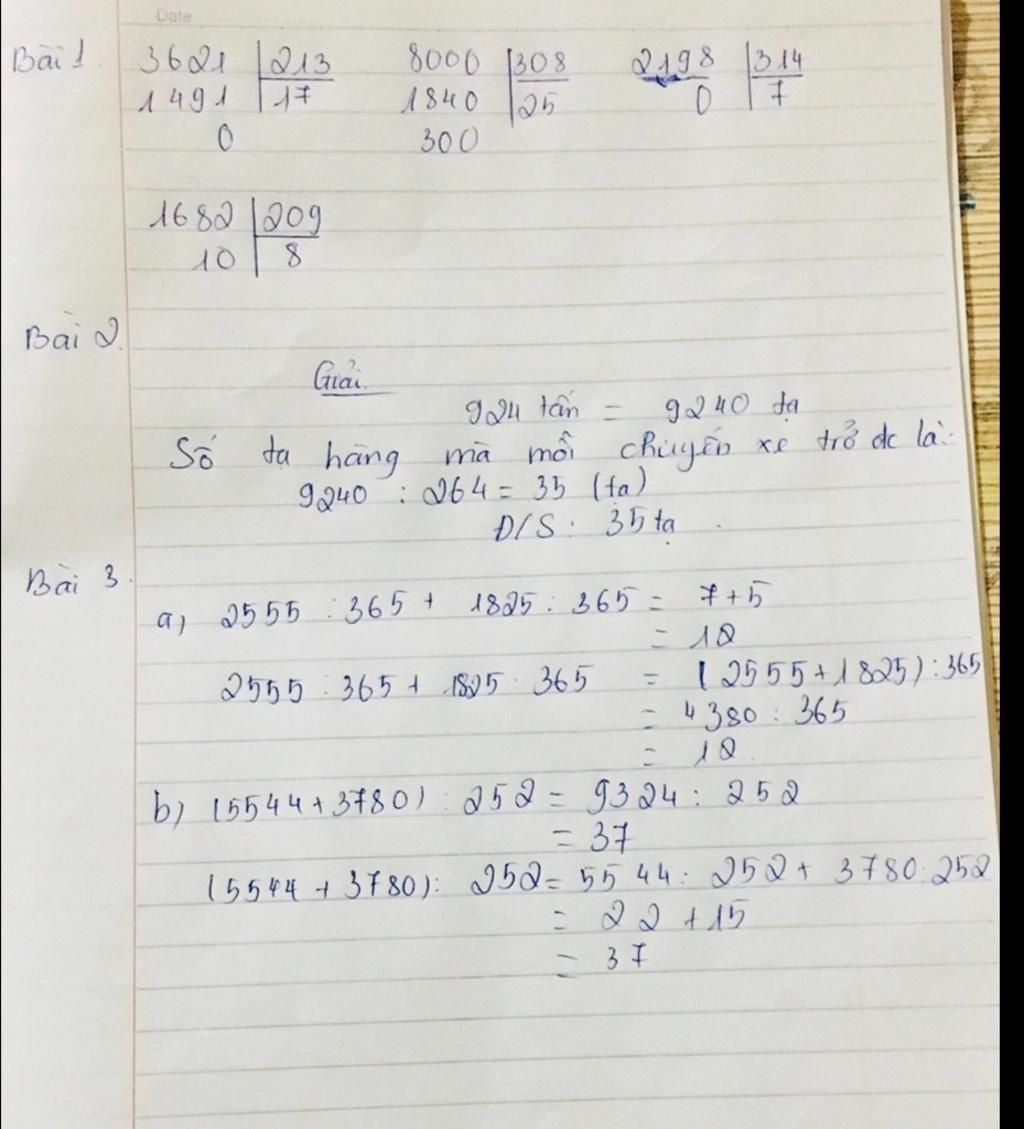 Date
Bài 1. 3621 213 8000 308 2198 314
1491 17 1840 25 0 7
0 300
1682 209
10 8
Bài 2.
Giải
924 tấn = 9240 tạ
Số tạ hàng mà mỗi chuyến xe trở dc là:
9240 : 264 = 35 (tạ)
Đ/S : 35 tạ
Bài 3.
a) 2555 : 365 + 1825 : 365 = 7 + 5
= 12
2555 : 365 + 1825 : 365 = (2555 + 1825) : 365
= 4380 : 365
= 12
b) (5544 + 3780) : 252 = 9324 : 252
= 37
(5544 + 3780) : 252 = 5544 : 252 + 3780 : 252
= 22 + 15
= 37